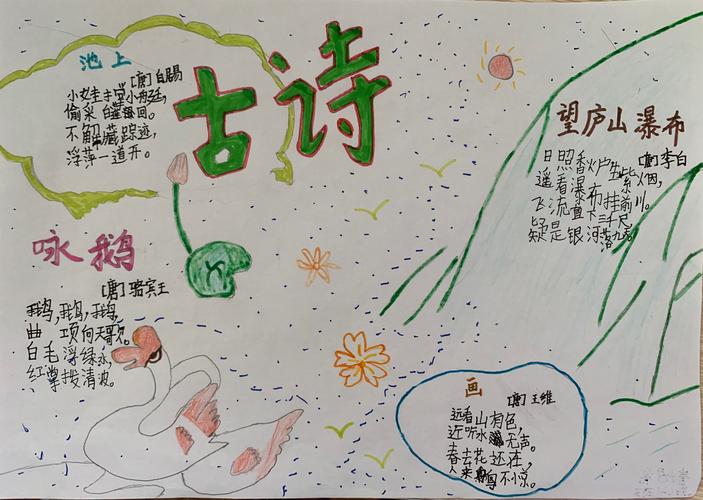 古诗
池上
[唐]白易
小娃撑小艇,
偷采白莲回。
不解藏踪迹,
浮萍一道开。
咏鹅
[唐]骆宾王
鹅,鹅,鹅,
曲项向天歌。
白毛浮绿水,
红掌拨清波。
望庐山瀑布
[唐]李白
日照香炉生紫烟,
遥看瀑布挂前川。
飞流直下三千尺
疑是银河落九天。
画
[唐]王维
远看山有色,
近听水无声。
春去花还在,
人来鸟不惊。